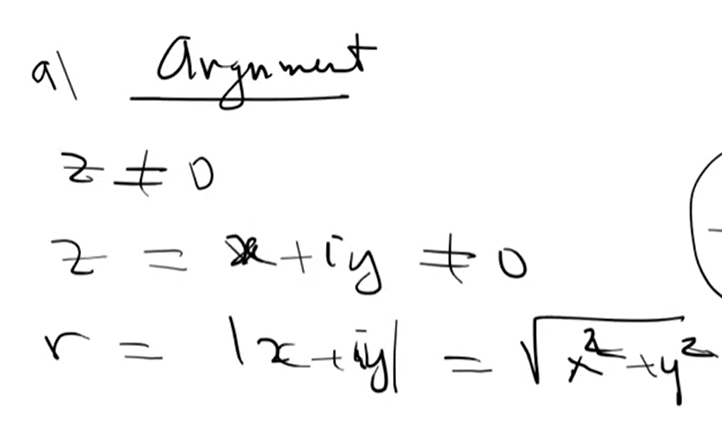 a) Argument
z ≠ 0
z = x + iy ≠ 0
r = |x + iy| = √(x² + y²)